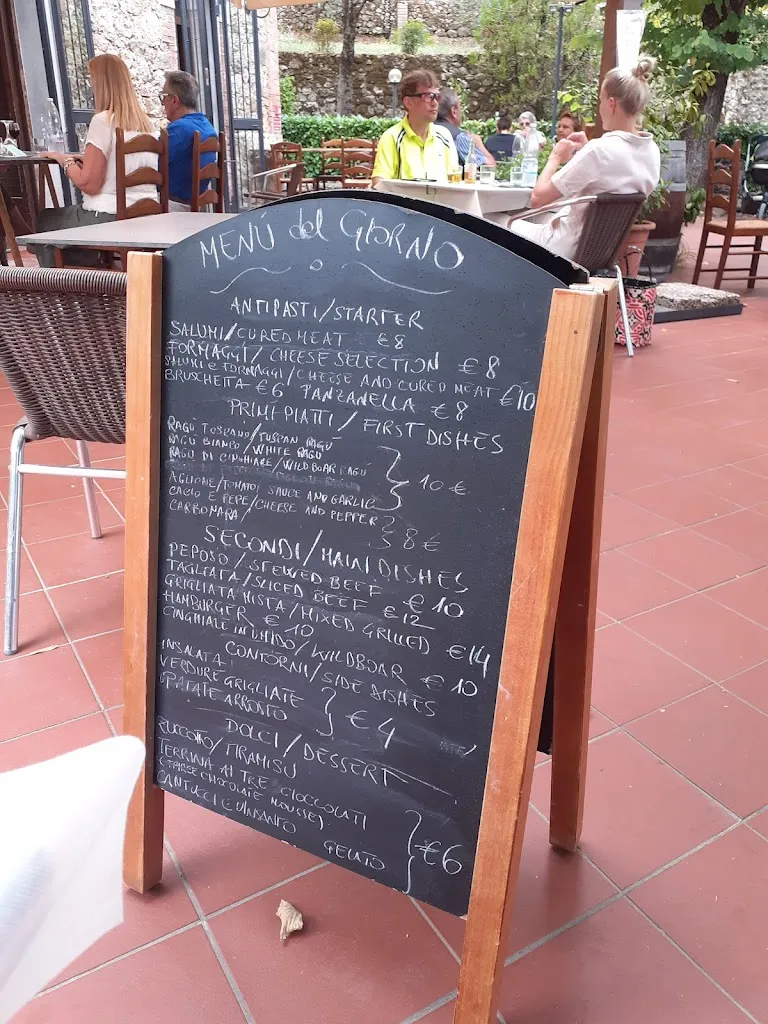 MENÚ del GIORNO
ANTIPASTI/STARTER
SALUMI/CURED MEAT €8
FORMAGGI/CHEESE SELECTION €8
SALUMI E FORMAGGI/CHEESE AND CURED MEAT €10
BRUSCHETTA €6 PANZANELLA €8
PRIMI PIATTI/FIRST DISHES
RAGÙ TOSCANO/TUSCAN RAGÙ
RAGÙ BIANCO/WHITE RAGÙ
RAGÙ DI CINGHIALE/WILD BOAR RAGÙ
10 €
AGLIONE/TOMATO SAUCE AND GARLIC
CACIO E PEPE/CHEESE AND PEPPER
CARBONARA/
8 €
SECONDI/MAIN DISHES
PEPOSO/STEWED BEEF €10
TAGLIATA/SLICED BEEF €12
GRIGLIATA MISTA/MIXED GRILLED €14
HAMBURGER €10
CINGHIALE IN UMIDO/WILDBOAR €10
CONTORNI/SIDE DISHES
INSALATA
VERDURE GRIGLIATE
PATATE ARROSTO
€4
DOLCI/DESSERT
ZUCCOTTO/TIRAMISU
TERRINA AI TRE CIOCCOLATI
CHOCOLATE MOUSSE)
CANTUCCI E VINSANTO
GELATO
€6